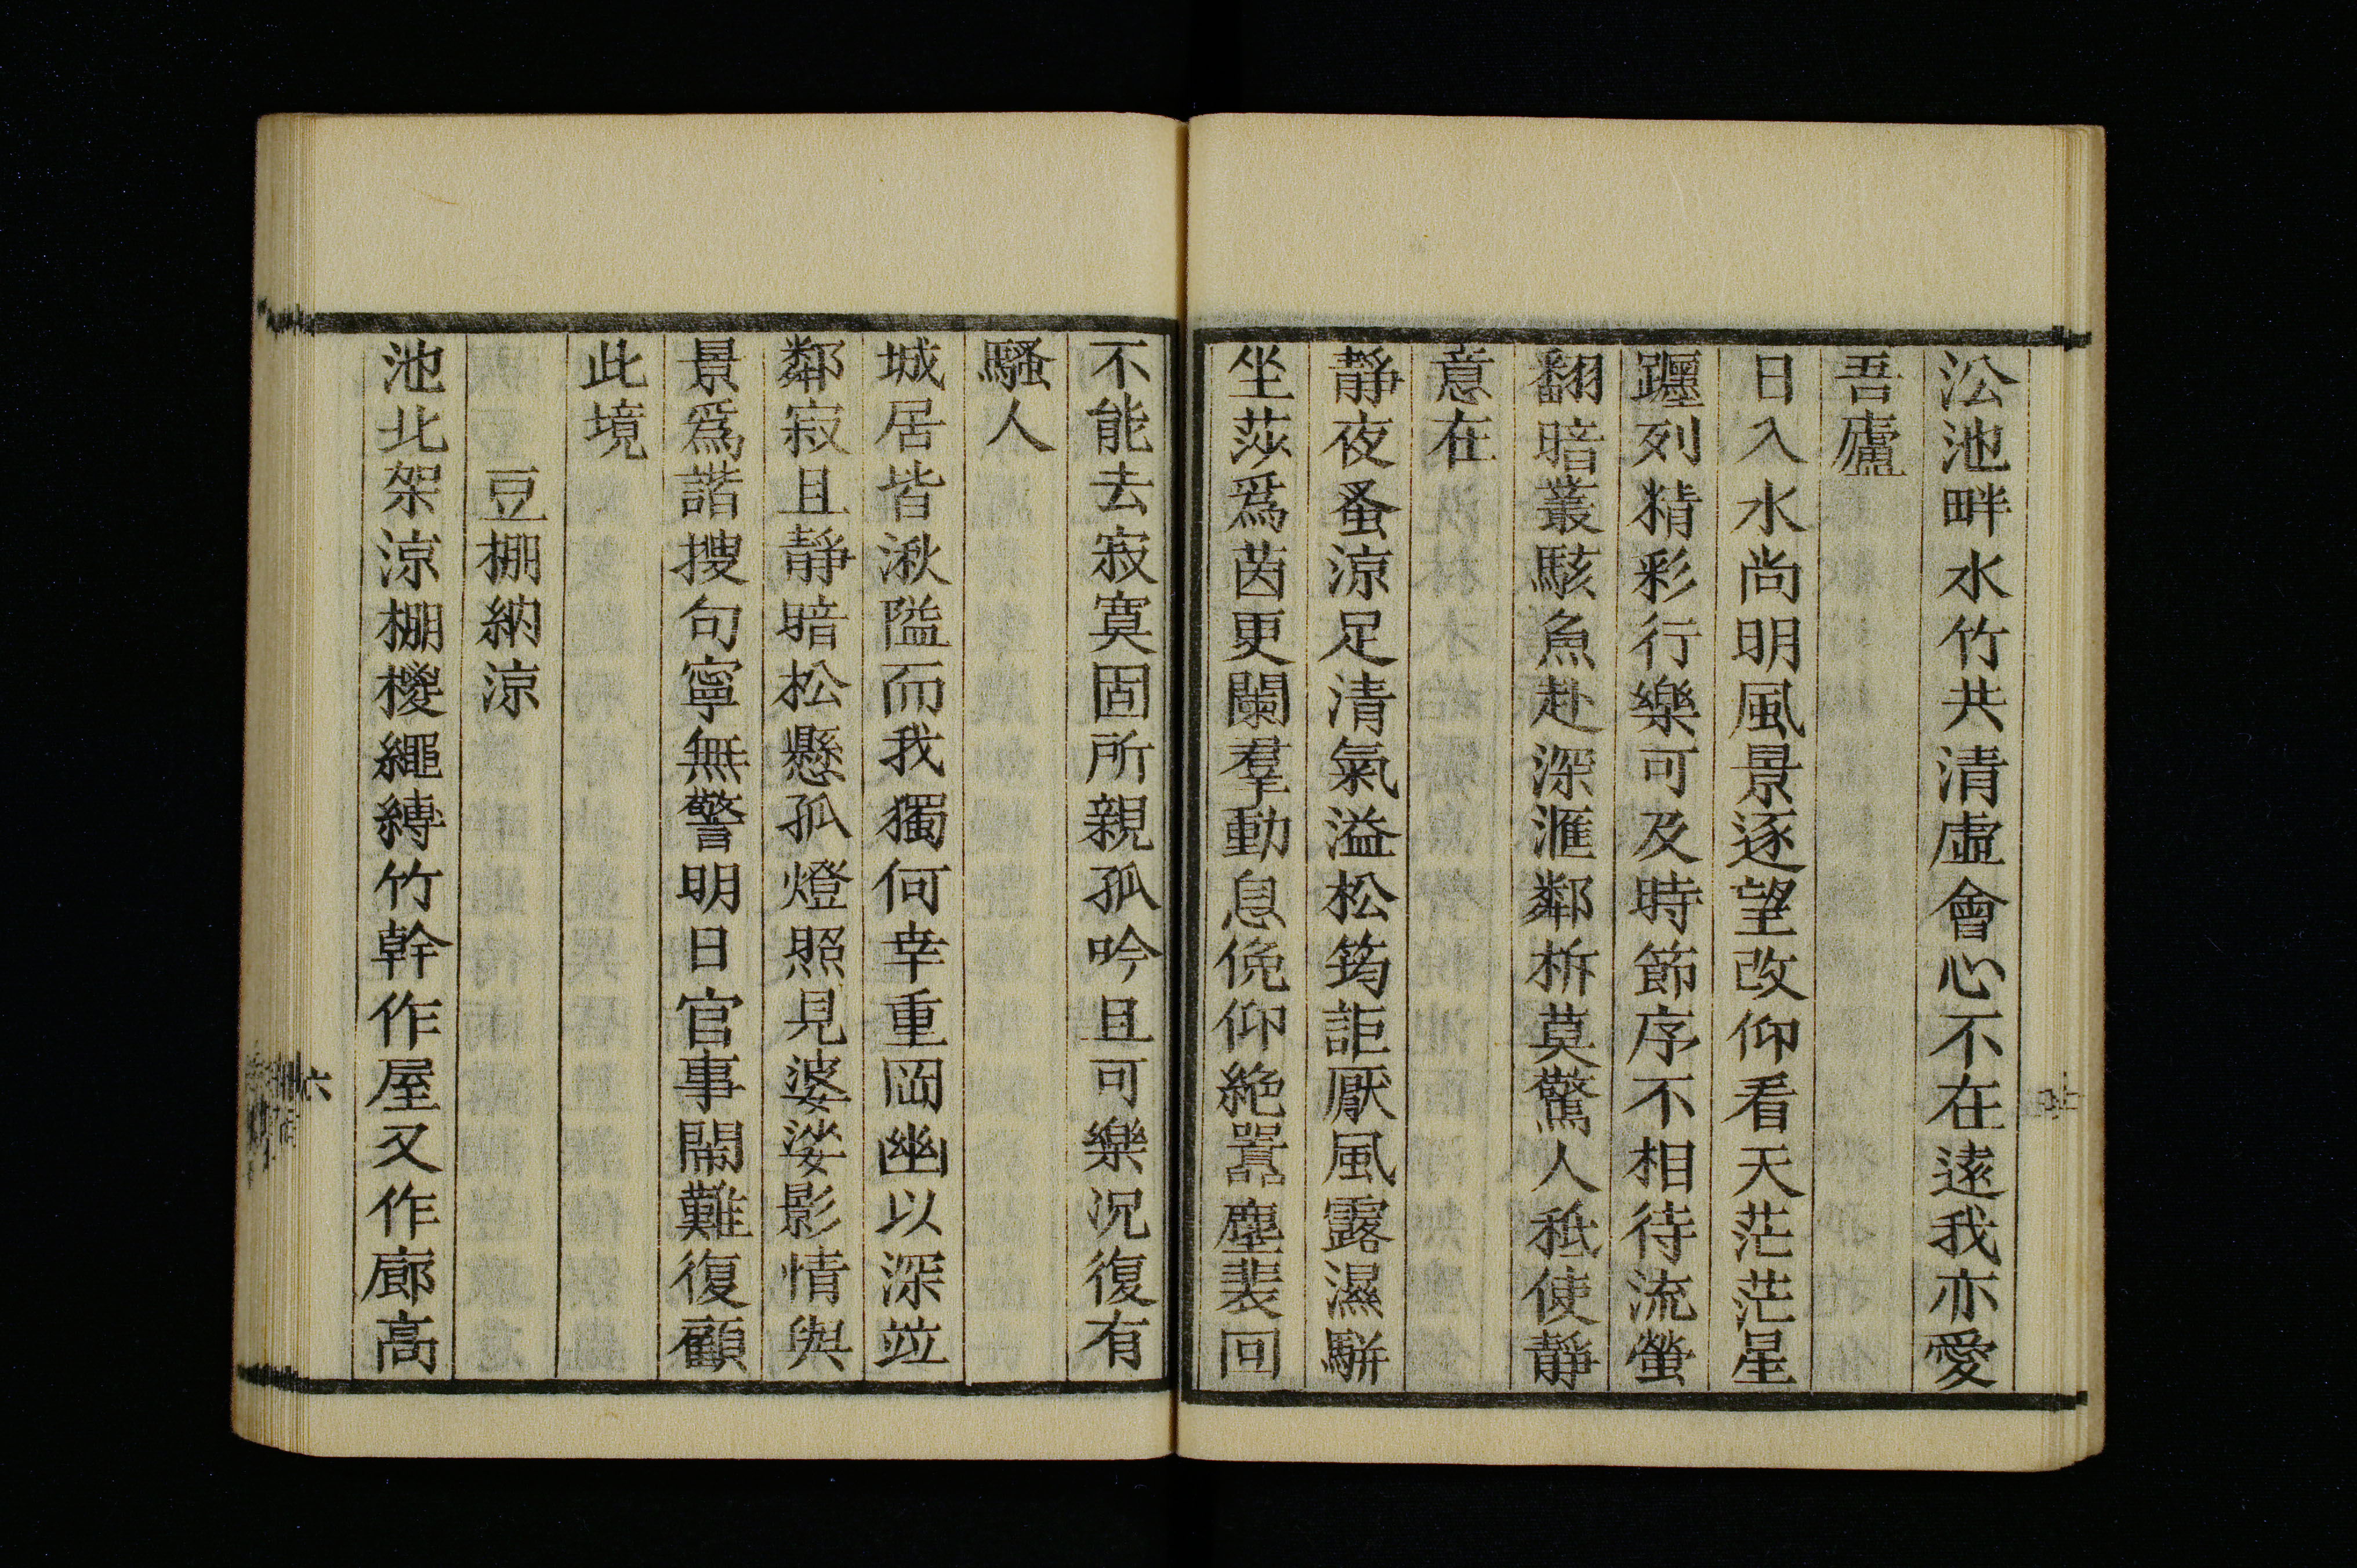 汾池畔水竹共清虛會心不在遠我亦愛
吾廬
日入水尚明風景逐望改仰看天茫茫星
躔列精彩行樂可及時節序不相待流螢
翻暗叢駭魚赴深滙鄰柝莫驚人秪使靜
意在
靜夜蚤涼足清氣溢松筠詎厭風露濕駢
坐莎爲茵更闌羣動息俛仰絶囂塵裴回
不能去寂寞固所親孤吟且可樂况復有
騷人
城居皆湫隘而我獨何幸重岡幽以深竝
鄰寂且靜暗松懸孤燈照見婆娑影情與
景爲諧搜句寧無警明日官事鬧難復顧
此境
豆棚納涼
池北架涼棚椶繩縛竹幹作屋又作廊高
六